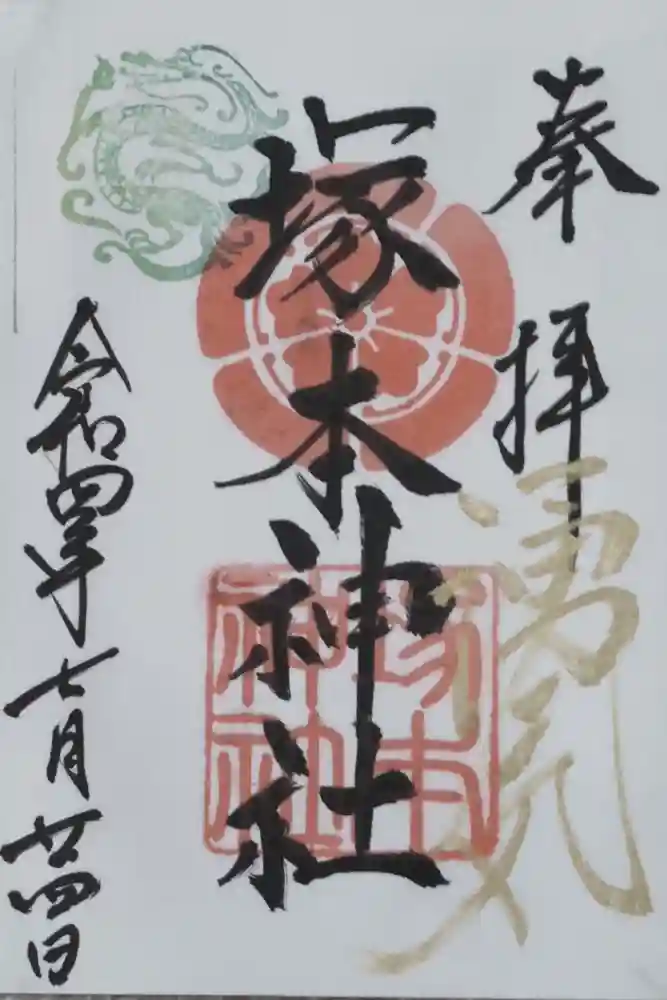 奉拝
湧気
塚本神社
塚本神社
令和四年七月廿四日